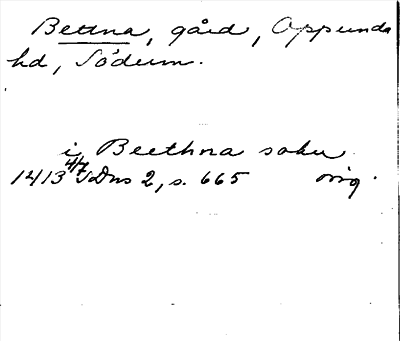 Bettna, gård, Oppunda
hd, Söderm.
i Beethna sokn
1413 4/7 SDns 2, s. 665 orig.